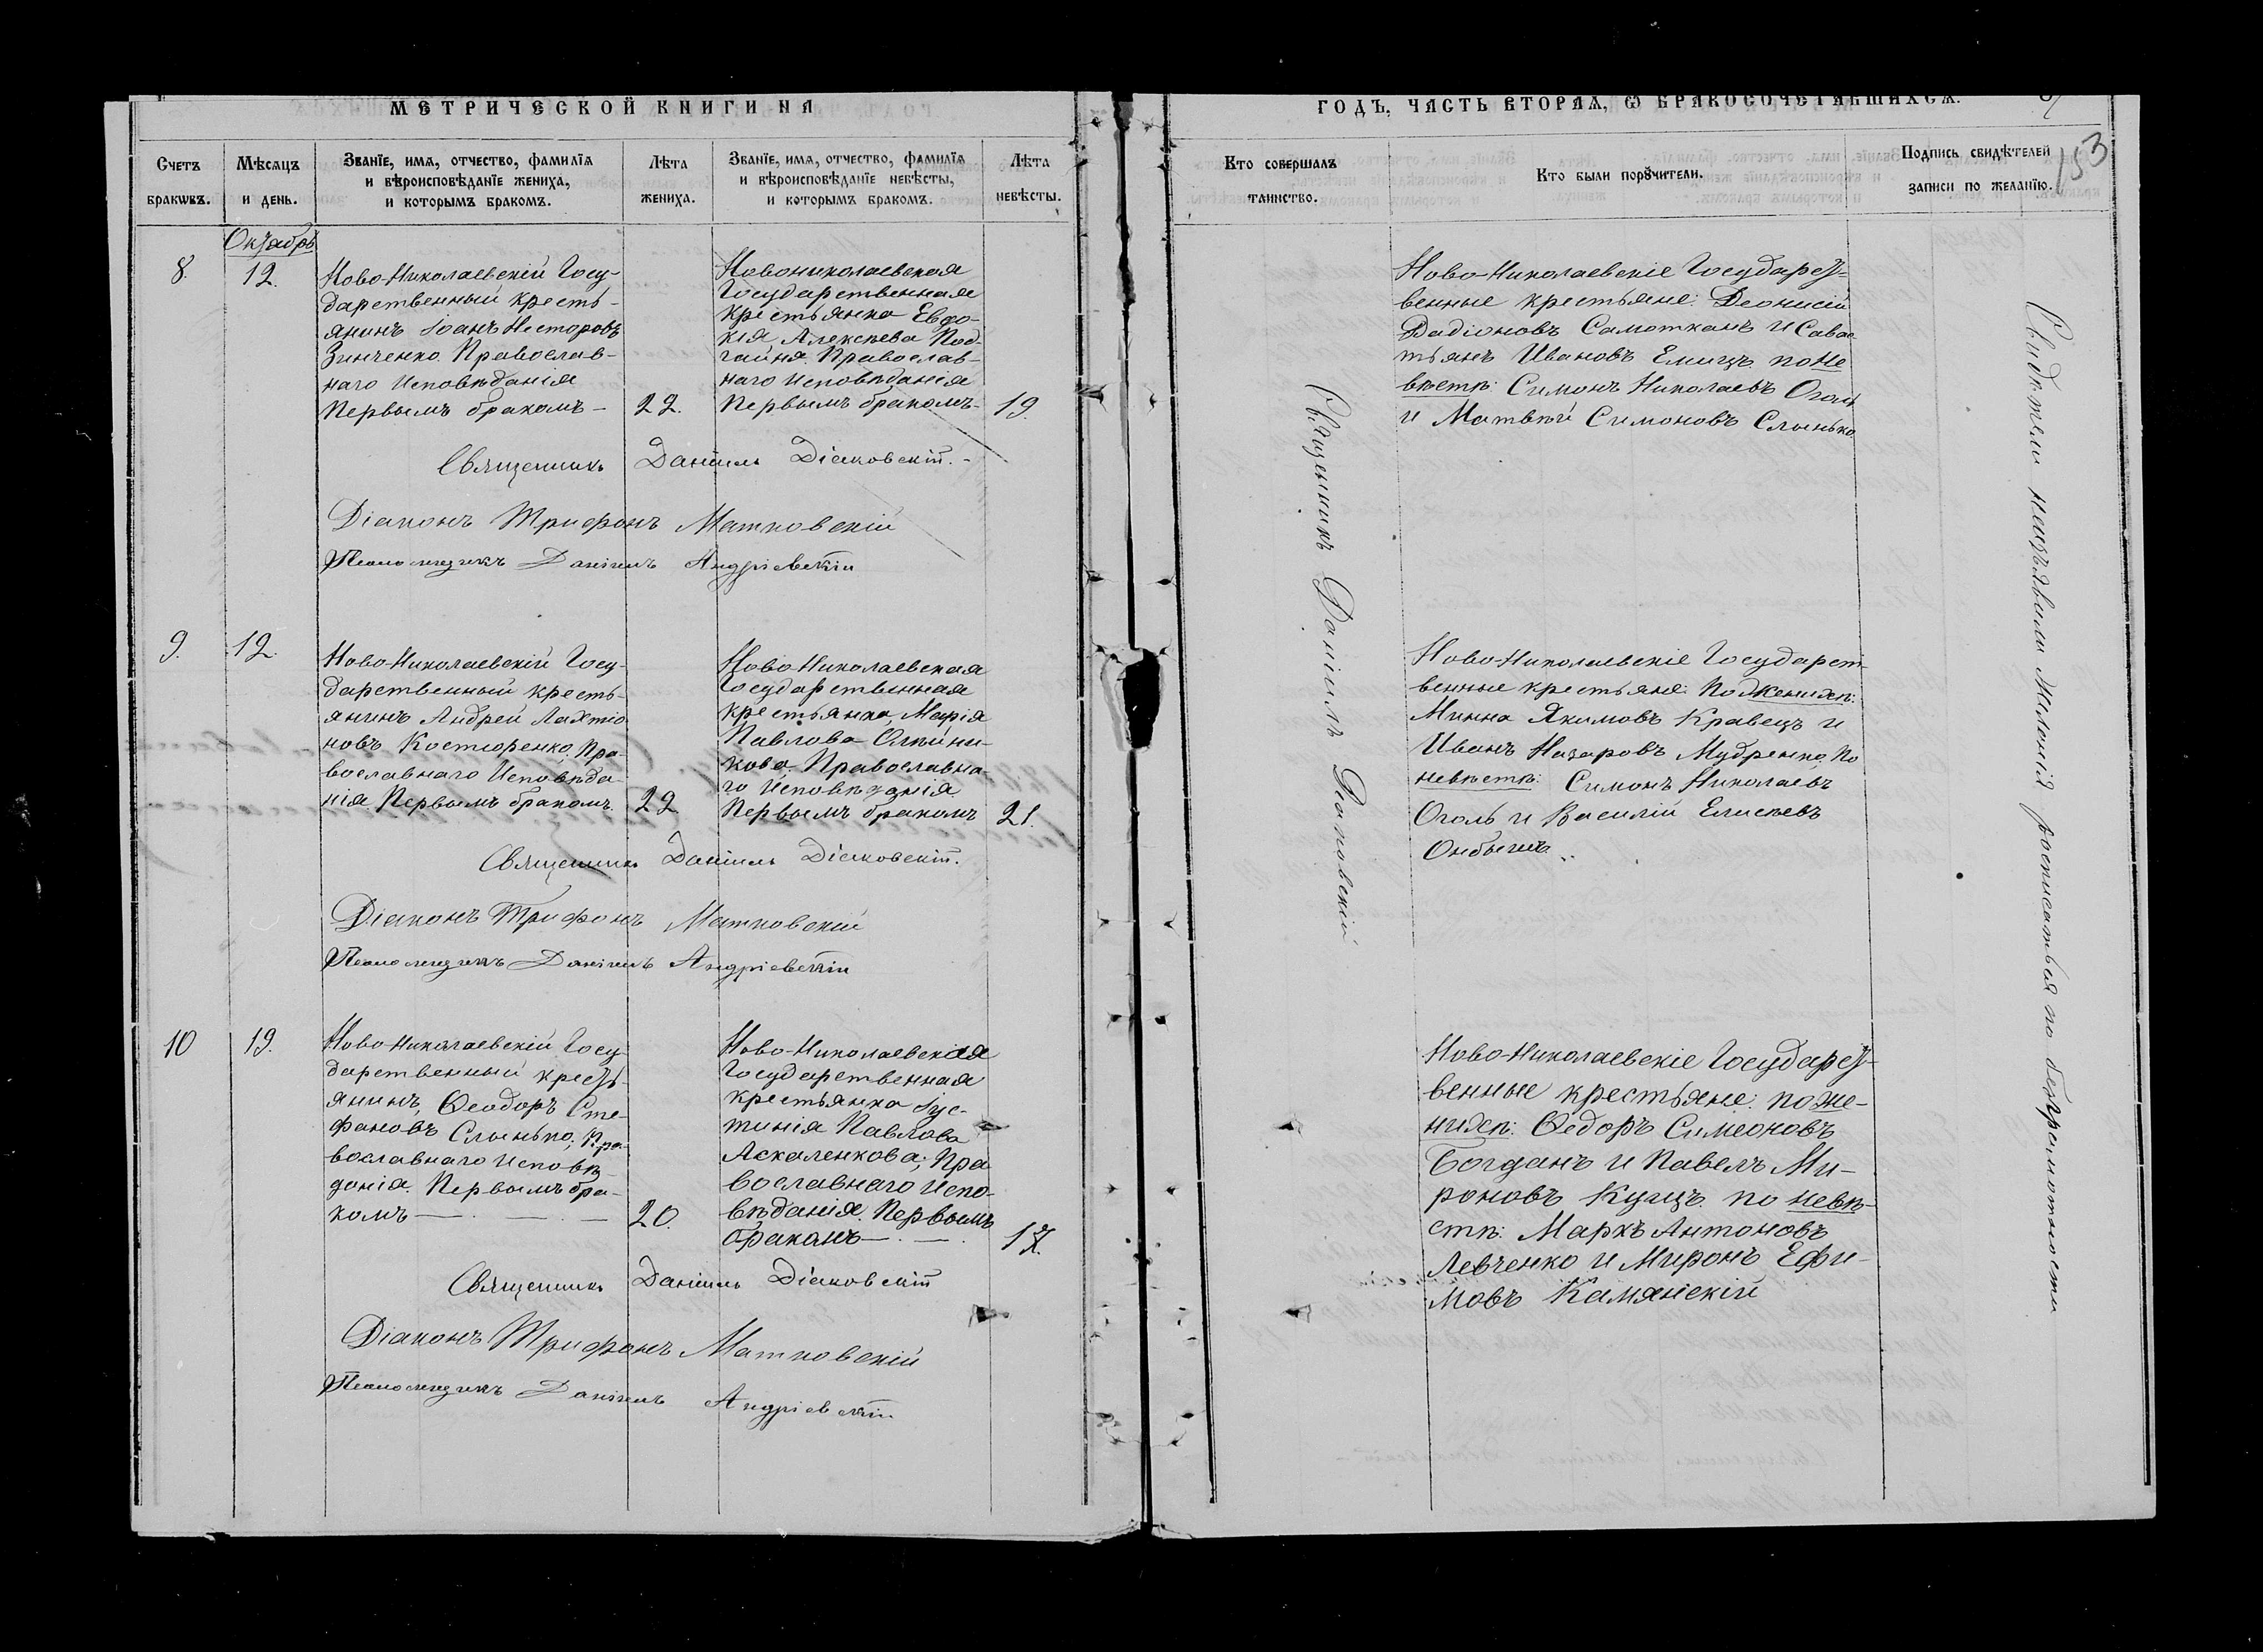 МЕТРИЧЕСКОЙ КНИГИ НА
ГОДЪ, ЧАСТЬ ВТОРАЯ, Ѡ БРАКОСОЧЕТАВШИХСЯ.
153
Счетъ
бракѡвъ.
Мѣсѧцъ
и день.
Званїе, имѧ, отчество, фамилїѧ
и вѣроисповѣданїе жениха,
и которымъ бракомъ.
Лѣта
жениха.
Званїе, имѧ, отчество, фамилїѧ
и вѣроисповѣданїе невѣсты,
и которымъ бракомъ.
Лѣта
невѣсты.
Кто совершалъ
таинство.
Кто были порꙋчители.
Подпись свидѣтелей
записи по желанїю.
Октябрь
8.
12.
Ново-Николаевскій Госу-
дарственный кресть-
янинъ Іоанъ Несторовъ
Зинченко. Православ-
наго Исповѣданія
Первымъ бракомъ –
22.
Новониколаевская
Государственная
крестьянка Евдо-
кія Алексѣева Под-
гайня. Православ-
наго Исповѣданія
Первымъ бракомъ-
19
Ново-Николаевскіе Государст-
венные крестьяне: Деонисій
Самоткань и Савас
тьянъ Ивановъ Емицъ по не
вѣстѣ: Симонъ Николаевъ Оголь
и Матвѣй Симоновъ Слынько
Священникъ Даніилъ Діаковскій. -
Діаконъ Трифонъ Матковскій
Псаломщикъ Даніилъ Андріевскій
9.
12.
Ново-Николаевскій Госу-
дарственный кресть-
янинъ Андрей Лахтіо
новъ Костюренко, Пра-
вославнаго Исповѣда-
нія Первымъ бракомъ.
22
Ново-Николаевская
Государственная
крестьянка, Марія
Павлова Олѣйни-
кова, Православна-
го Исповѣданія
Первымъ бракомъ
21.
Ново-Николаевскіе Государст-
венные крестьяне: По женихѣ:
Минна Якимовъ Кравецъ и
Иванъ Назаровъ Мудренко, По
невѣстѣ: Симонъ Николаевъ
Оголь и Василій Елисѣевъ
Священникъ Даніилъ Діаковскій.
Діаконъ Трифонъ Матковскій
Псаломщикъ Даніилъ Андріевскій
10
19.
Ново-Николаевскій Госу-
дарственный кресть-
янинъ, Ѳеодоръ Сте-
фановъ Слынько, Пра-
вославнаго Исповѣ-
данія. Первымъ бра-
комъ — . — . —
20.
Ново-Николаевская
Государственная
крестьянка Іус-
тинія Павлова
Аскаленкова; Пра
вославнаго Испо-
вѣданія. Первымъ
бракомъ — . — .
17.
Ново-Николаевскіе Государст-
венные крестьяне: по же-
нихѣ: Ѳедоръ Симеоновъ
Богданъ и Павелъ Ми-
роновъ Куцъ. по невѣ-
стѣ: Маркъ Антоновъ
Левченко и Миронъ Ефи-
мовъ Камянскій
Священникъ Даніилъ Діаковскій
Діаконъ Трифонъ Матковскій
Псаломщикъ Даніилъ Андріевскій
Священникъ Даніилъ Діаковскій
Свидѣтели неизъявили желанія росписаться по безграмотности